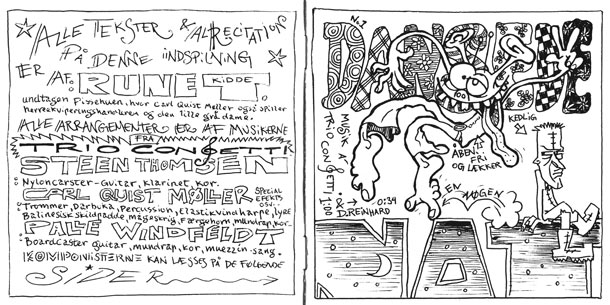 ALLE TEKSTER & AL RECITATION
PÅ DENNE INDSPILNING
ER AF: RUNE T. KIDDE.
undtagen Pissehuen, hvor Carl Quist Møller også spiller
herreekviperingshandleren og den lille grå dame.
ALLE ARRANGEMENTER ER AF MUSIKERNE
FRA
TRIO CONGETTI:
STEEN THOMSEN
: Nyloncaster-Guitar, klarinet, kor.
CARL QUIST MØLLER SPECIAL EFFEKTS OSV..
: Trommer, Darbuka, Percussion, elastikvindharpe, lyre
Balinesisk Skildpadde, møgeskrig, Farfarhorn, mundrap, kor.
PALLE WINDFELDT
: Boardcaster guitar, mundrap, kor, muezzin sang.
KOMPONISTERNE KAN LÆSSES PÅ DE FØLGENDE
SIDER
No. 1
DANSKE
TOO
KEDLIG
MUSIK AF
TRIO CONGETTI 1:00
& D. REINHARD
0:34
ÅBEN,
FRI
OG LÆKKER
EN MOGEN
NAT